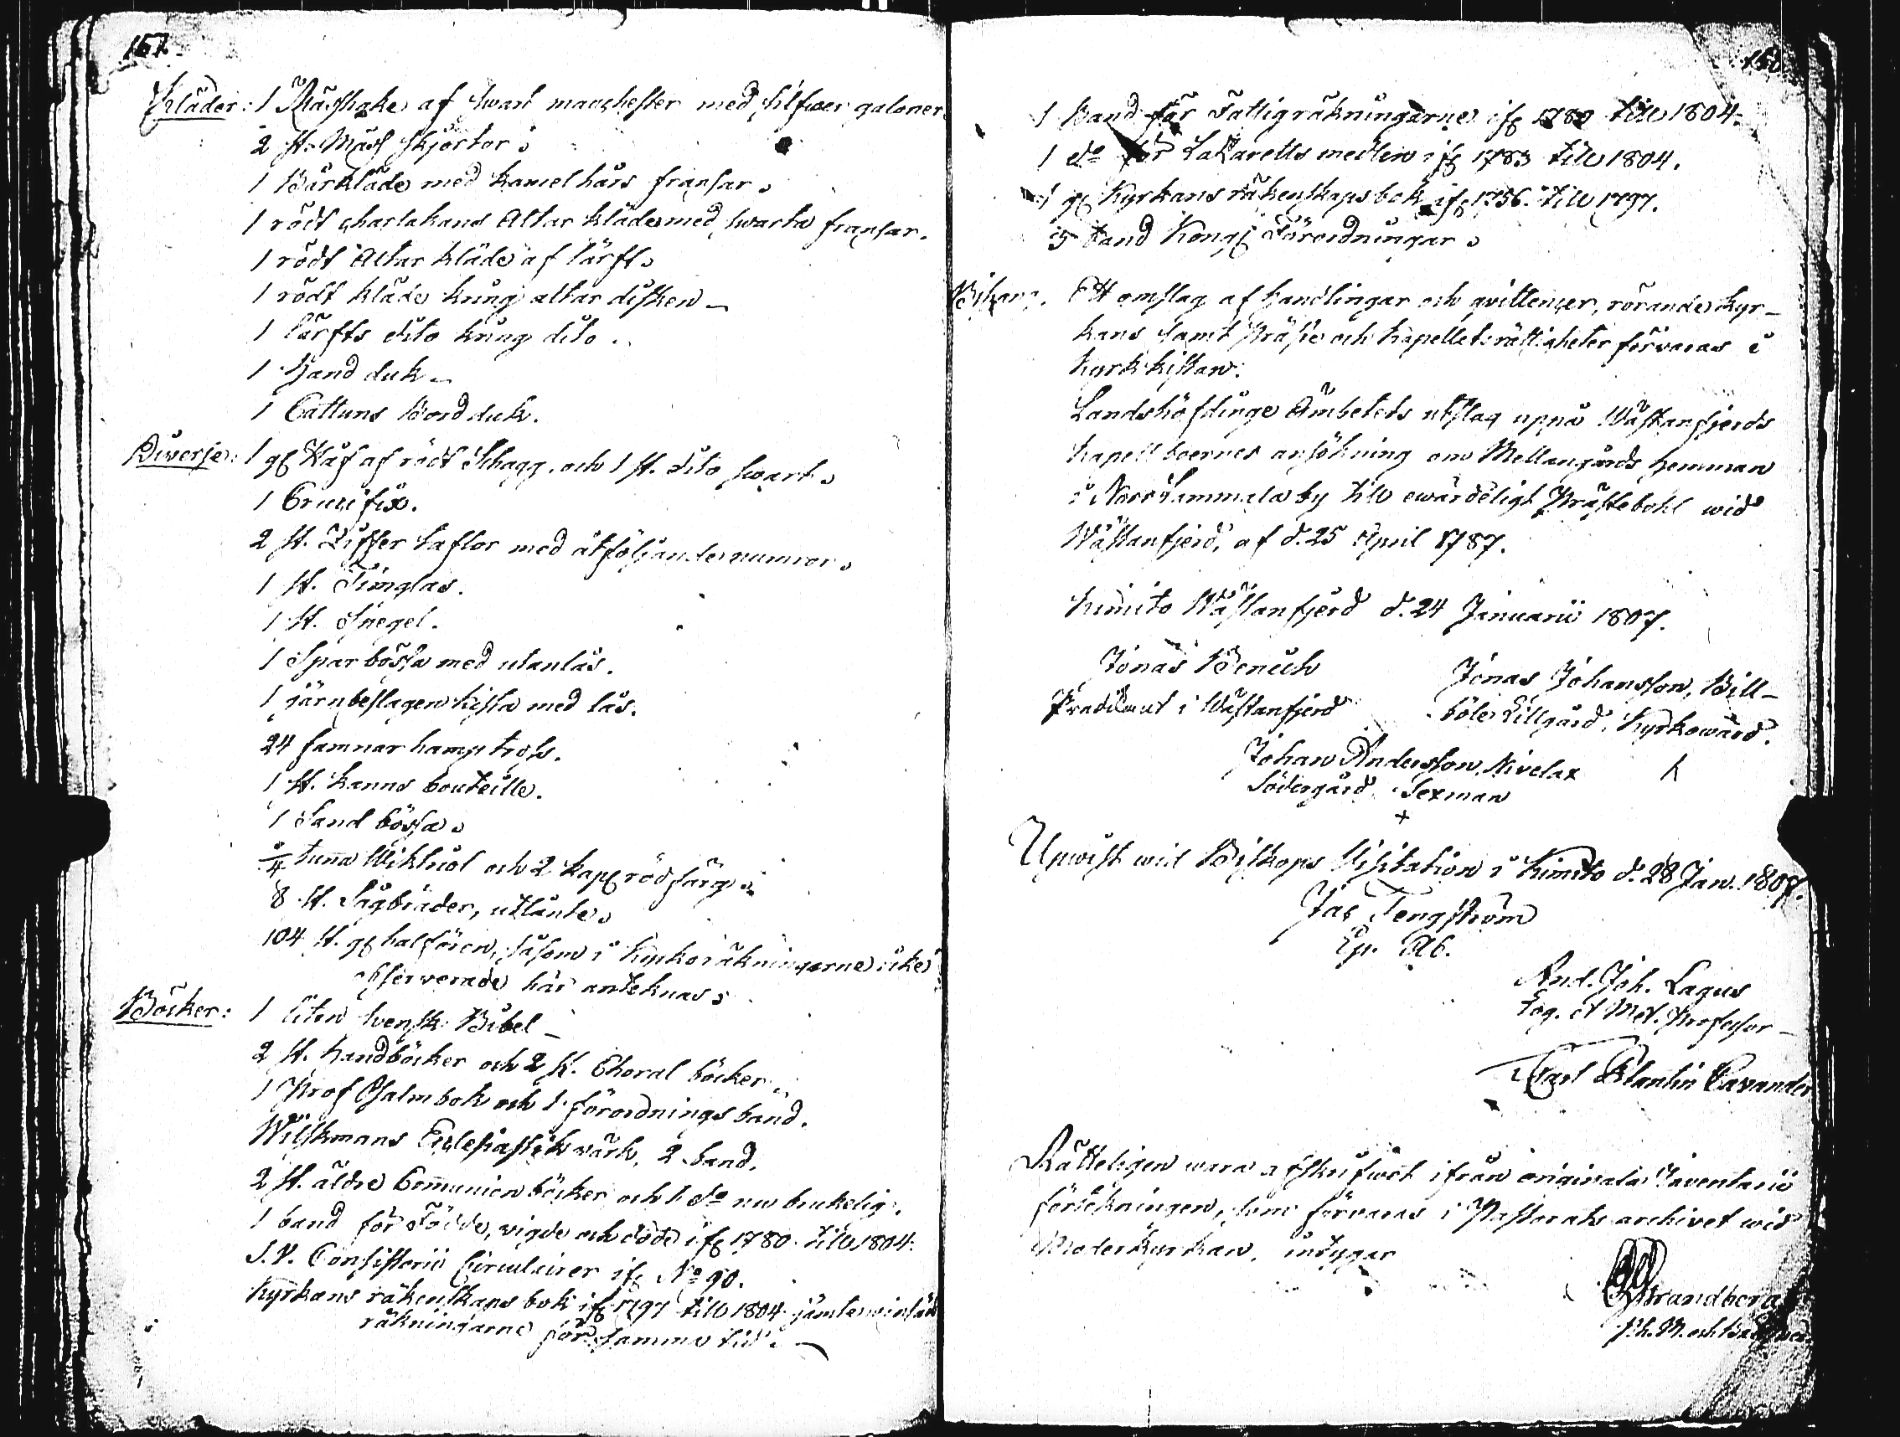 157.
Kläder: 1 Mässhake af swart manchester med silfwer galoner
2 st. Mäss skjortor.
1 Bårkläde med kamelhårs fransar.
1 rödt scharlakans Altar kläde med swarta fransar.
1 rödt Altar kläde af lärft.
1 rödt kläde kring altar disken
1 lärfts dito kring dito.
1 Hand duk
1 Cattuns Bord duk.
Diverse: 1 st Håf af rödt Schagg, och 1 st. dito swart.
1 Crucifix.
2 st. Ziffer taflor med åtföljande numror.
1 st. Timglas.
1 st. Spegel.
1 Sparbössa med utanlås.
1 järnbeslagen kista med lås.
24 famnar hamptross.
1 st. kanns bouteille.
1 Sand bössa.
tunna Wiktriol och 2 kapp rödfärg.
8 st. Sågbräder, utlånte.
104 st. såsom i Kyrkoräkningarne icke
observerade här anteknas:
Böcker: 1 liten Svensk Bibel
2 st. handböcker och 2 st. Choral böcker.
1 Prof Psalmbok och 1 förordnings band.
Wilskmans Ecclesiastik värk, 2 band.
2 st. äldre Communion böcker och 1 do nu brukelig.
1 band för Födde, vigde och döde ifr 1780 till 1804.
S. V. Consistorii Circulairer ifr No 90.
Kyrkans räkenskaps bok ifr 1797 till 1804 jämte
räkningarne för samma tid.
1 Band för Fattigräkningarne ifr 1780 till 1804.
1 do för Lazaretts medlen ifr 1783 till 1804.
1 Kyrkans räkenskaps bok ifr 1756 till 1797.
5 band Kongl Förordningar.
Ett omslag af handlingar och qvittencer, rörande kyr-
kans samt Präste och kapellets rättigheter förvaras i
kyrk kistan.
Landshöfdinge Ämbetets utslag uppå Wästanfjerds
kapell boernes ansökning om Mellangårds hemman
i Norrlammala by till ewärdeligt Prästebohl wid
Wästanfjerd, af d. 25 April 1787.
Kimito Wästanfjerd d. 24 Januarii 1807.
Jonas
Predikant i Wästanfjerd
Jonas Johansson, Bill-
böle Lillgård, Kyrkowärd.
Johan Andersson, Nivelax
Södergård Sexman
Upwist wid Biskops Visitation i Kimito d. 28 Jan. 1807.
Jac. Tengström
Ep. Ab.
And. Joh. Lagus
Log. et Met. Professor
Carl Cavander
Rätteligen wara afskrifwet ifrån originala Inventarii
förtekningen, som förvaras i Pastorats archivet wid
Moderkyrkan, intygar
Strandberg